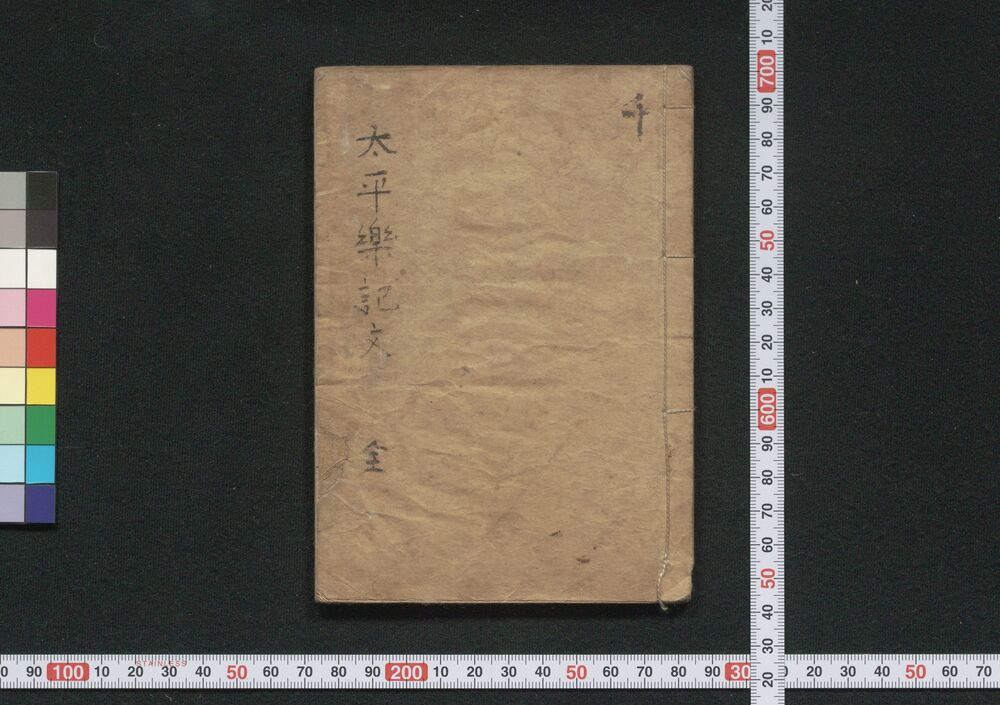 太平樂記文 全
20
10
700
90
80
70
60
50
40
30
20
10
600
90
80
70
60
50
40
30
20
0 90 100 10 20 30 40 50 60 70 80 90 200 10 20 30 40 50 60 70 80 90 30 20 30 40 50 60 70
STAINLESS